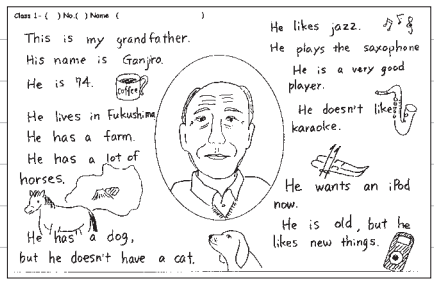 Class 1- ( ) No.( ) Name ( )
This is my grandfather.
His name is Ganjiro.
He is 74.
coffee
He lives in Fukushima.
He has a farm.
He has a lot of
horses.
He has a dog,
but he doesn't have a cat.
He likes jazz.
He plays the saxophone
He is a very good
player.
He doesn't like
karaoke.
He wants an iPod
now.
He is old, but he
likes new things.